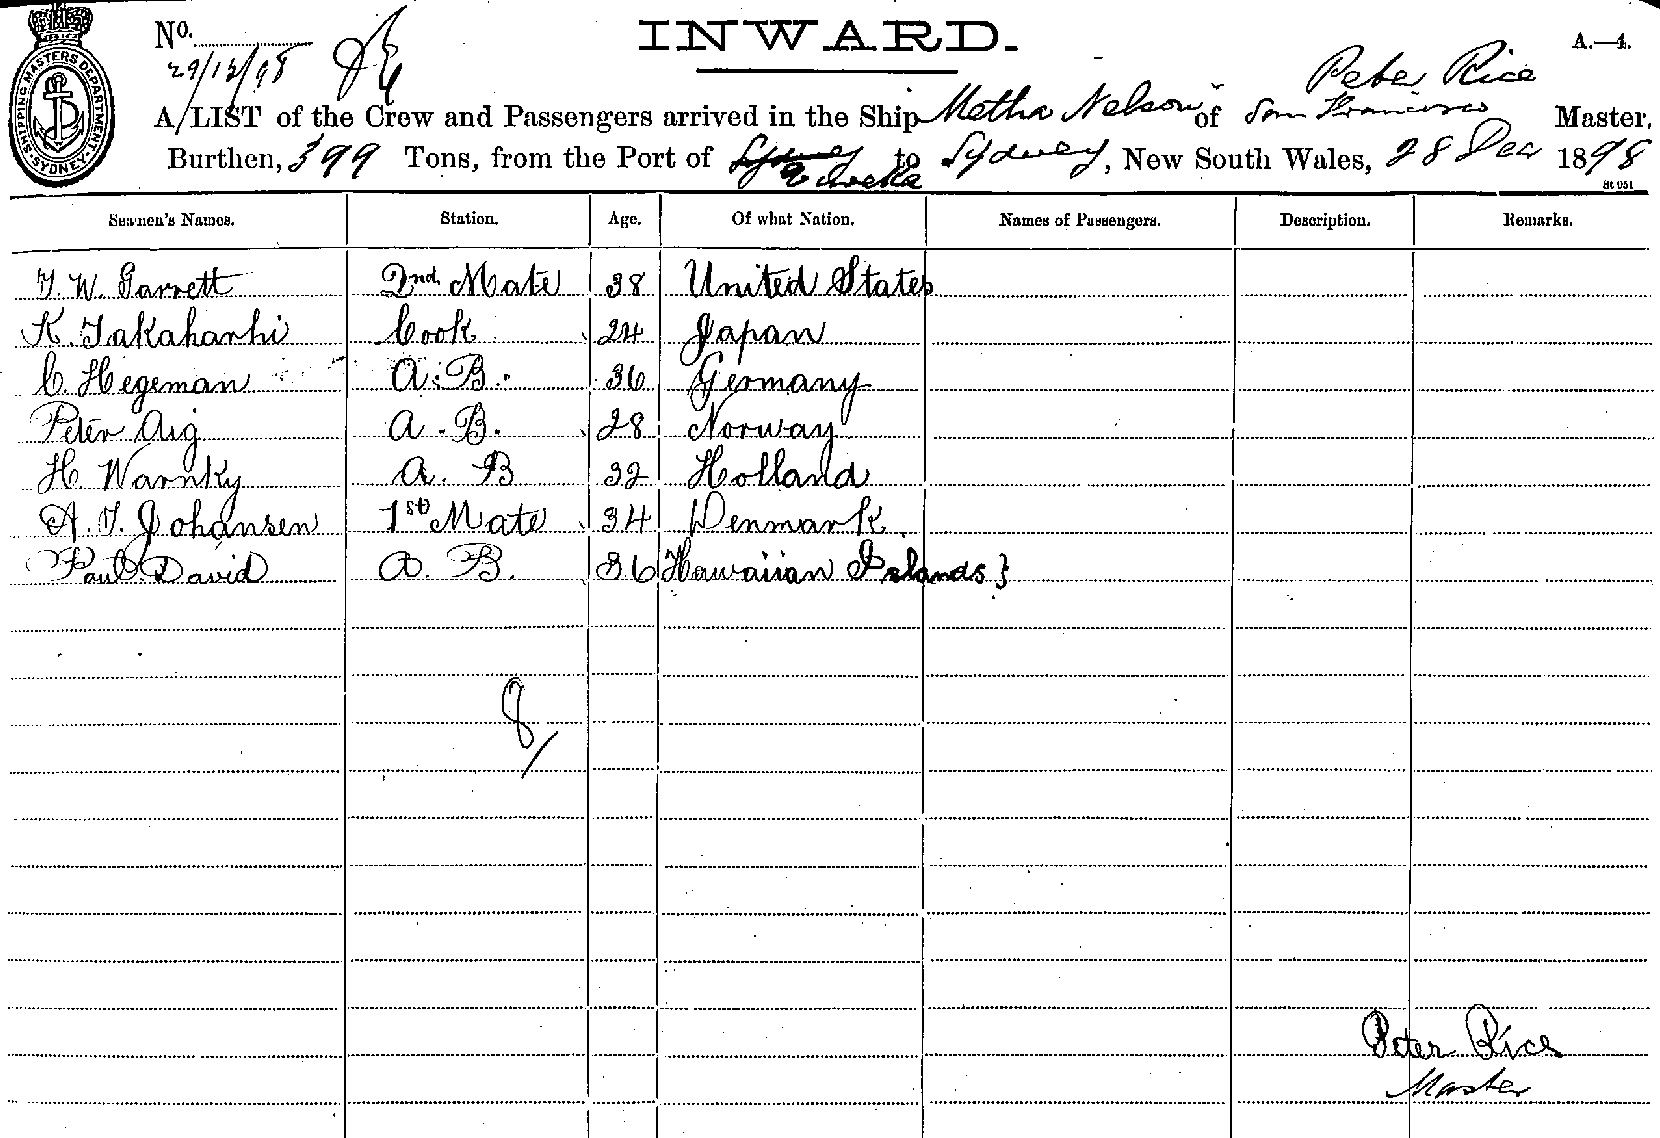 SHIPPING MASTERS DEPARTMENT. SYDNEY N.S.W.
No.
INWARD.
A.—4.
29/12/98
Peter Rice
A LIST of the Crew and Passengers arrived in the Ship Metha Nelson of San Francisco Master,
Burthen, 399 Tons, from the Port of Sydney Eureka to Sydney, New South Wales, 28 Dec 1898
St 951
Seamen's Names. Station. Age. Of what Nation. Names of Passengers. Description. Remarks.
T. W. Garrett 2nd Mate 38 United States
K. Takaharhi Cook 24 Japan
C. Hegeman A. B. 36 Germany
Peter Aig A. B. 28 Norway
H Warnky A. B 32 Holland
A. T. Johansen 1st Mate 34 Denmark
Paul David A. B. 36 Hawaiian Islands }
8/
Peter Rice
Master